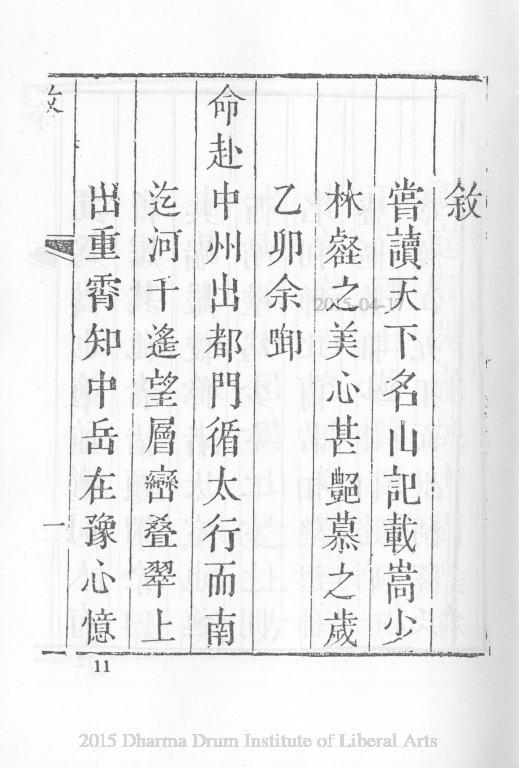 敘
嘗讀天下名山記載嵩少
林壑之美心甚艷慕之歲
乙卯余啣
命赴中州出都門循太行而南
迄河干遙望層巒叠翠上
出重霄知中岳在豫心憶
一
11
2015-04-17
2015 Dharma Drum Institute of Liberal Arts